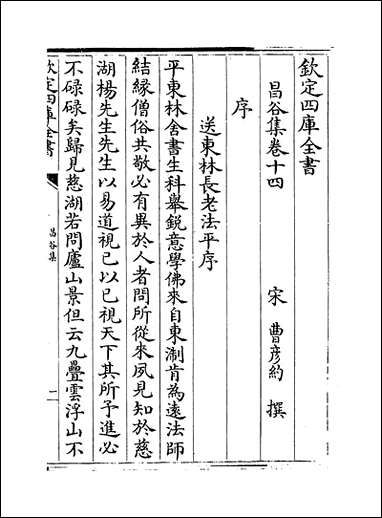 欽定四庫全書
昌谷集卷十四
宋 曹彦約 撰
序
送東林長老法平序
平東林舍書生科舉鋭意學佛來自東淛肯為遠法師
結緣僧俗共敬必有異於人者問所從來夙見知於慈
湖楊先生先生以易道視己以己視天下其所予進必
不碌碌矣歸見慈湖若問廬山景但云九疊雲浮山不
欽定四庫全書
昌谷集